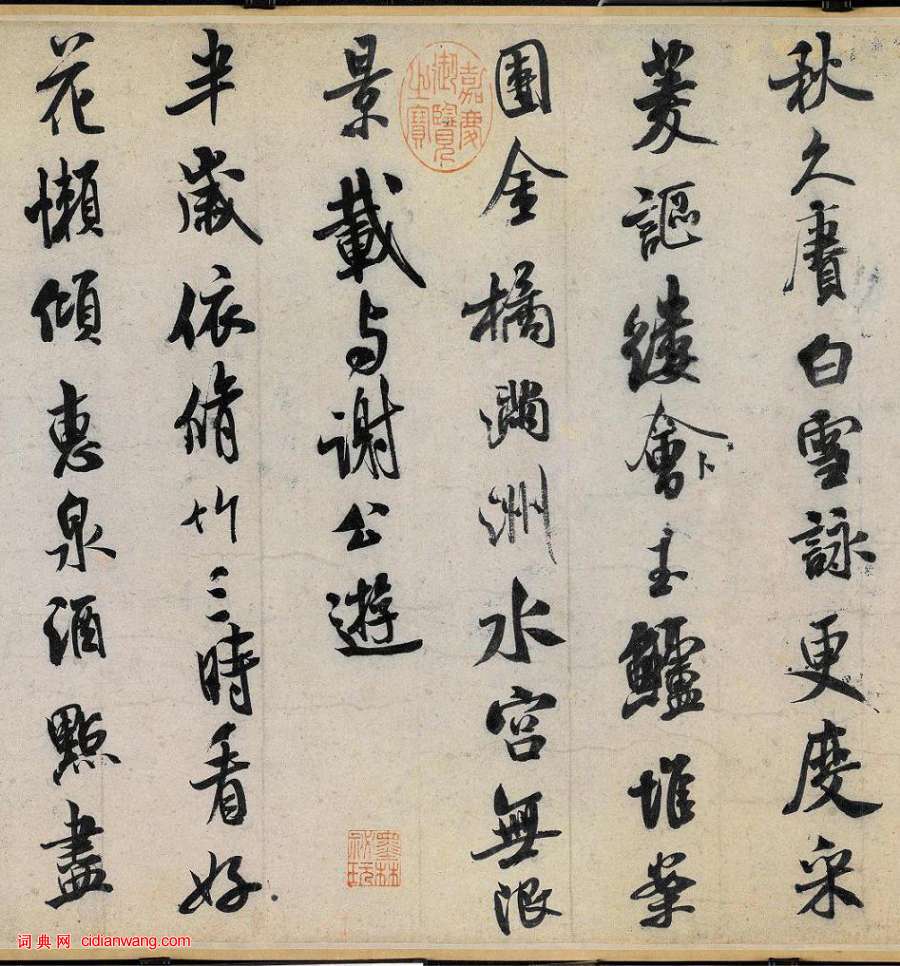 秋久賡白雪詠更度采
菱謳縷會玉鱸堆案
團金橘滿洲水宮無限
景載与謝公遊
半歲依脩竹三時看好
花懶傾惠泉酒點盡
嘉慶御覽之寶
墨林祕玩
词典网 cidianwang.com